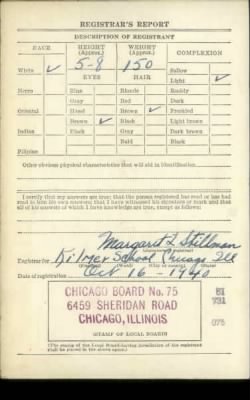 REGISTRAR'S REPORT
DESCRIPTION OF REGISTRANT
RACE HEIGHT (Approx.) WEIGHT (Approx.) COMPLEXION
5-8 150 Sallow
White ✓ EYES HAIR Light ✓
Negro Blue Blonde Ruddy
Gray Red Dark
Oriental Hazel Brown ✓ Freckled
Brown ✓ Black Light brown
Indian Black Gray Dark brown
Bald Black
Filipino
Other obvious physical characteristics that will aid in identification
I certify that my answers are true; that the person registered has read or has had
read to him his own answers; that I have witnessed his signature or mark and that
all of his answers of which I have knowledge are true, except as follows:
Margaret L Stillman
(Signature of registrar)
Registrar for Kilmer School Chicago Ill
Date of registration Oct 16 - 1940
CHICAGO BOARD No. 75
6459 SHERIDAN ROAD
CHICAGO, ILLINOIS
BI
731
075
(STAMP OF LOCAL BOARD)
(The stamp of the Local Board having jurisdiction of the registrant
shall be placed in the above space.)